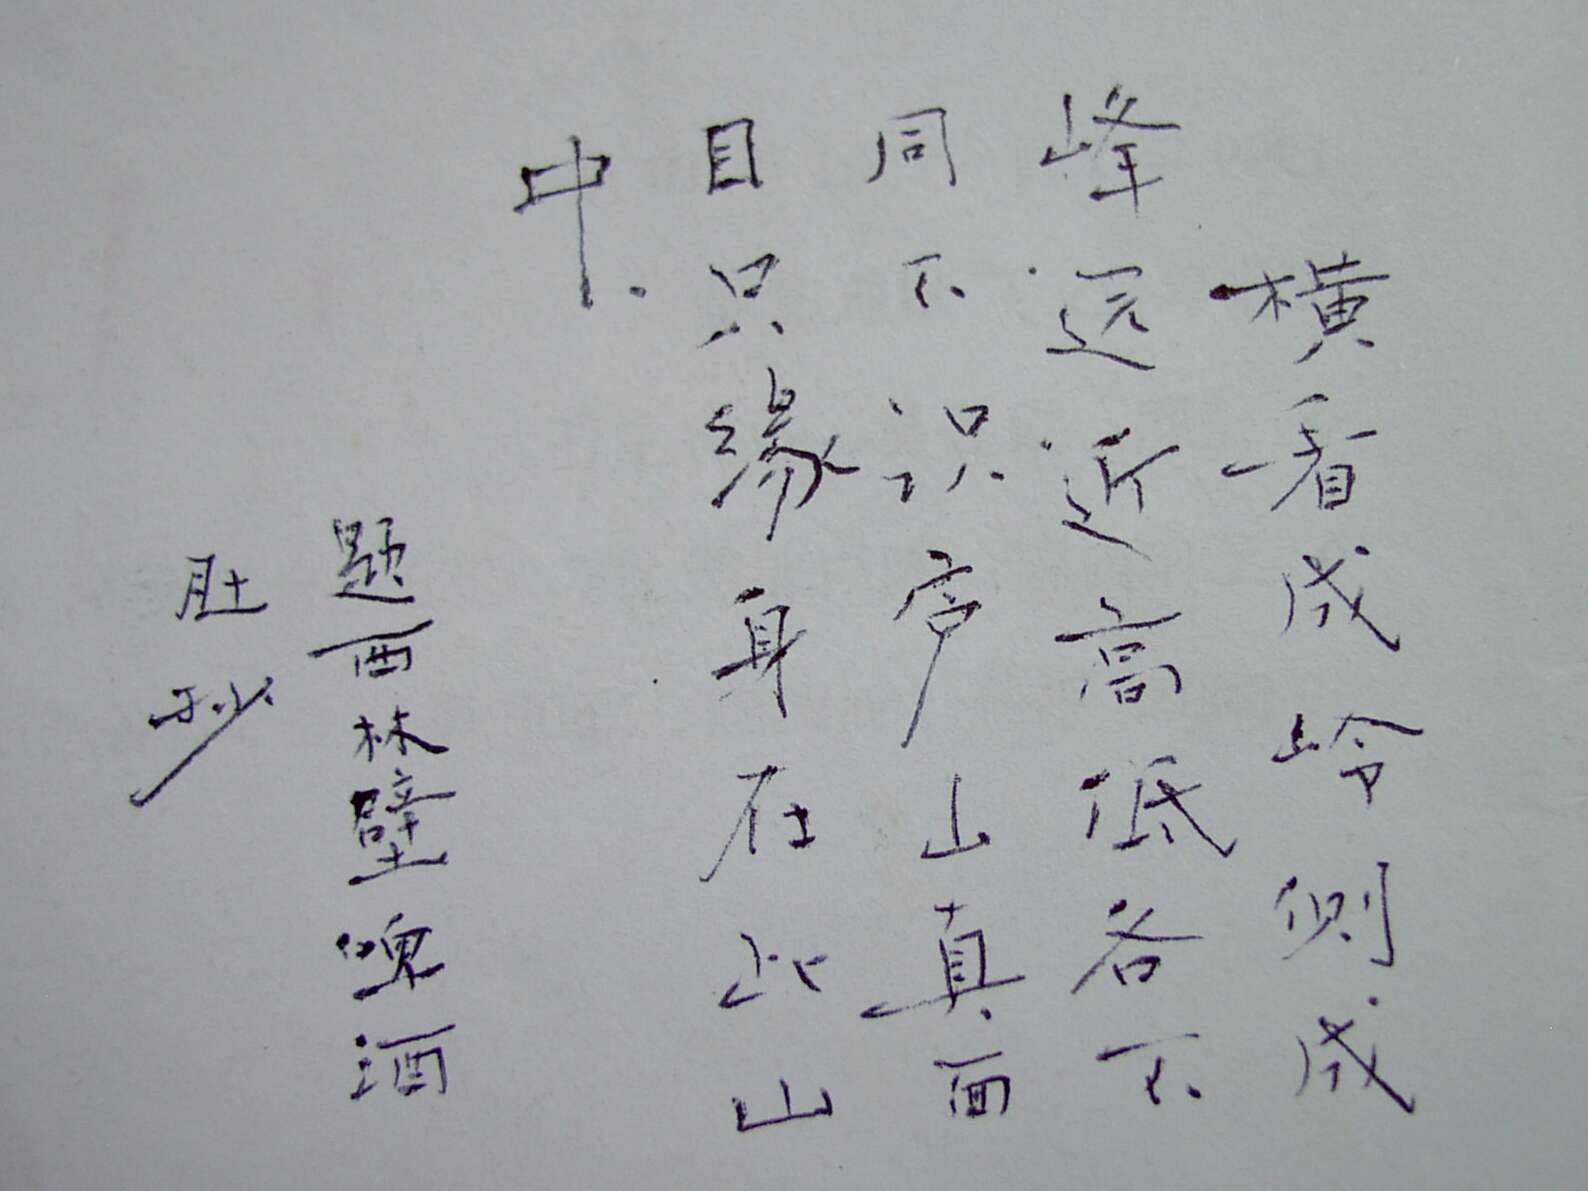 横看成岭侧成
峰远近高低各不
同不识庐山真面
目只缘身在此山
中.
题西林壁啤酒
肚抄